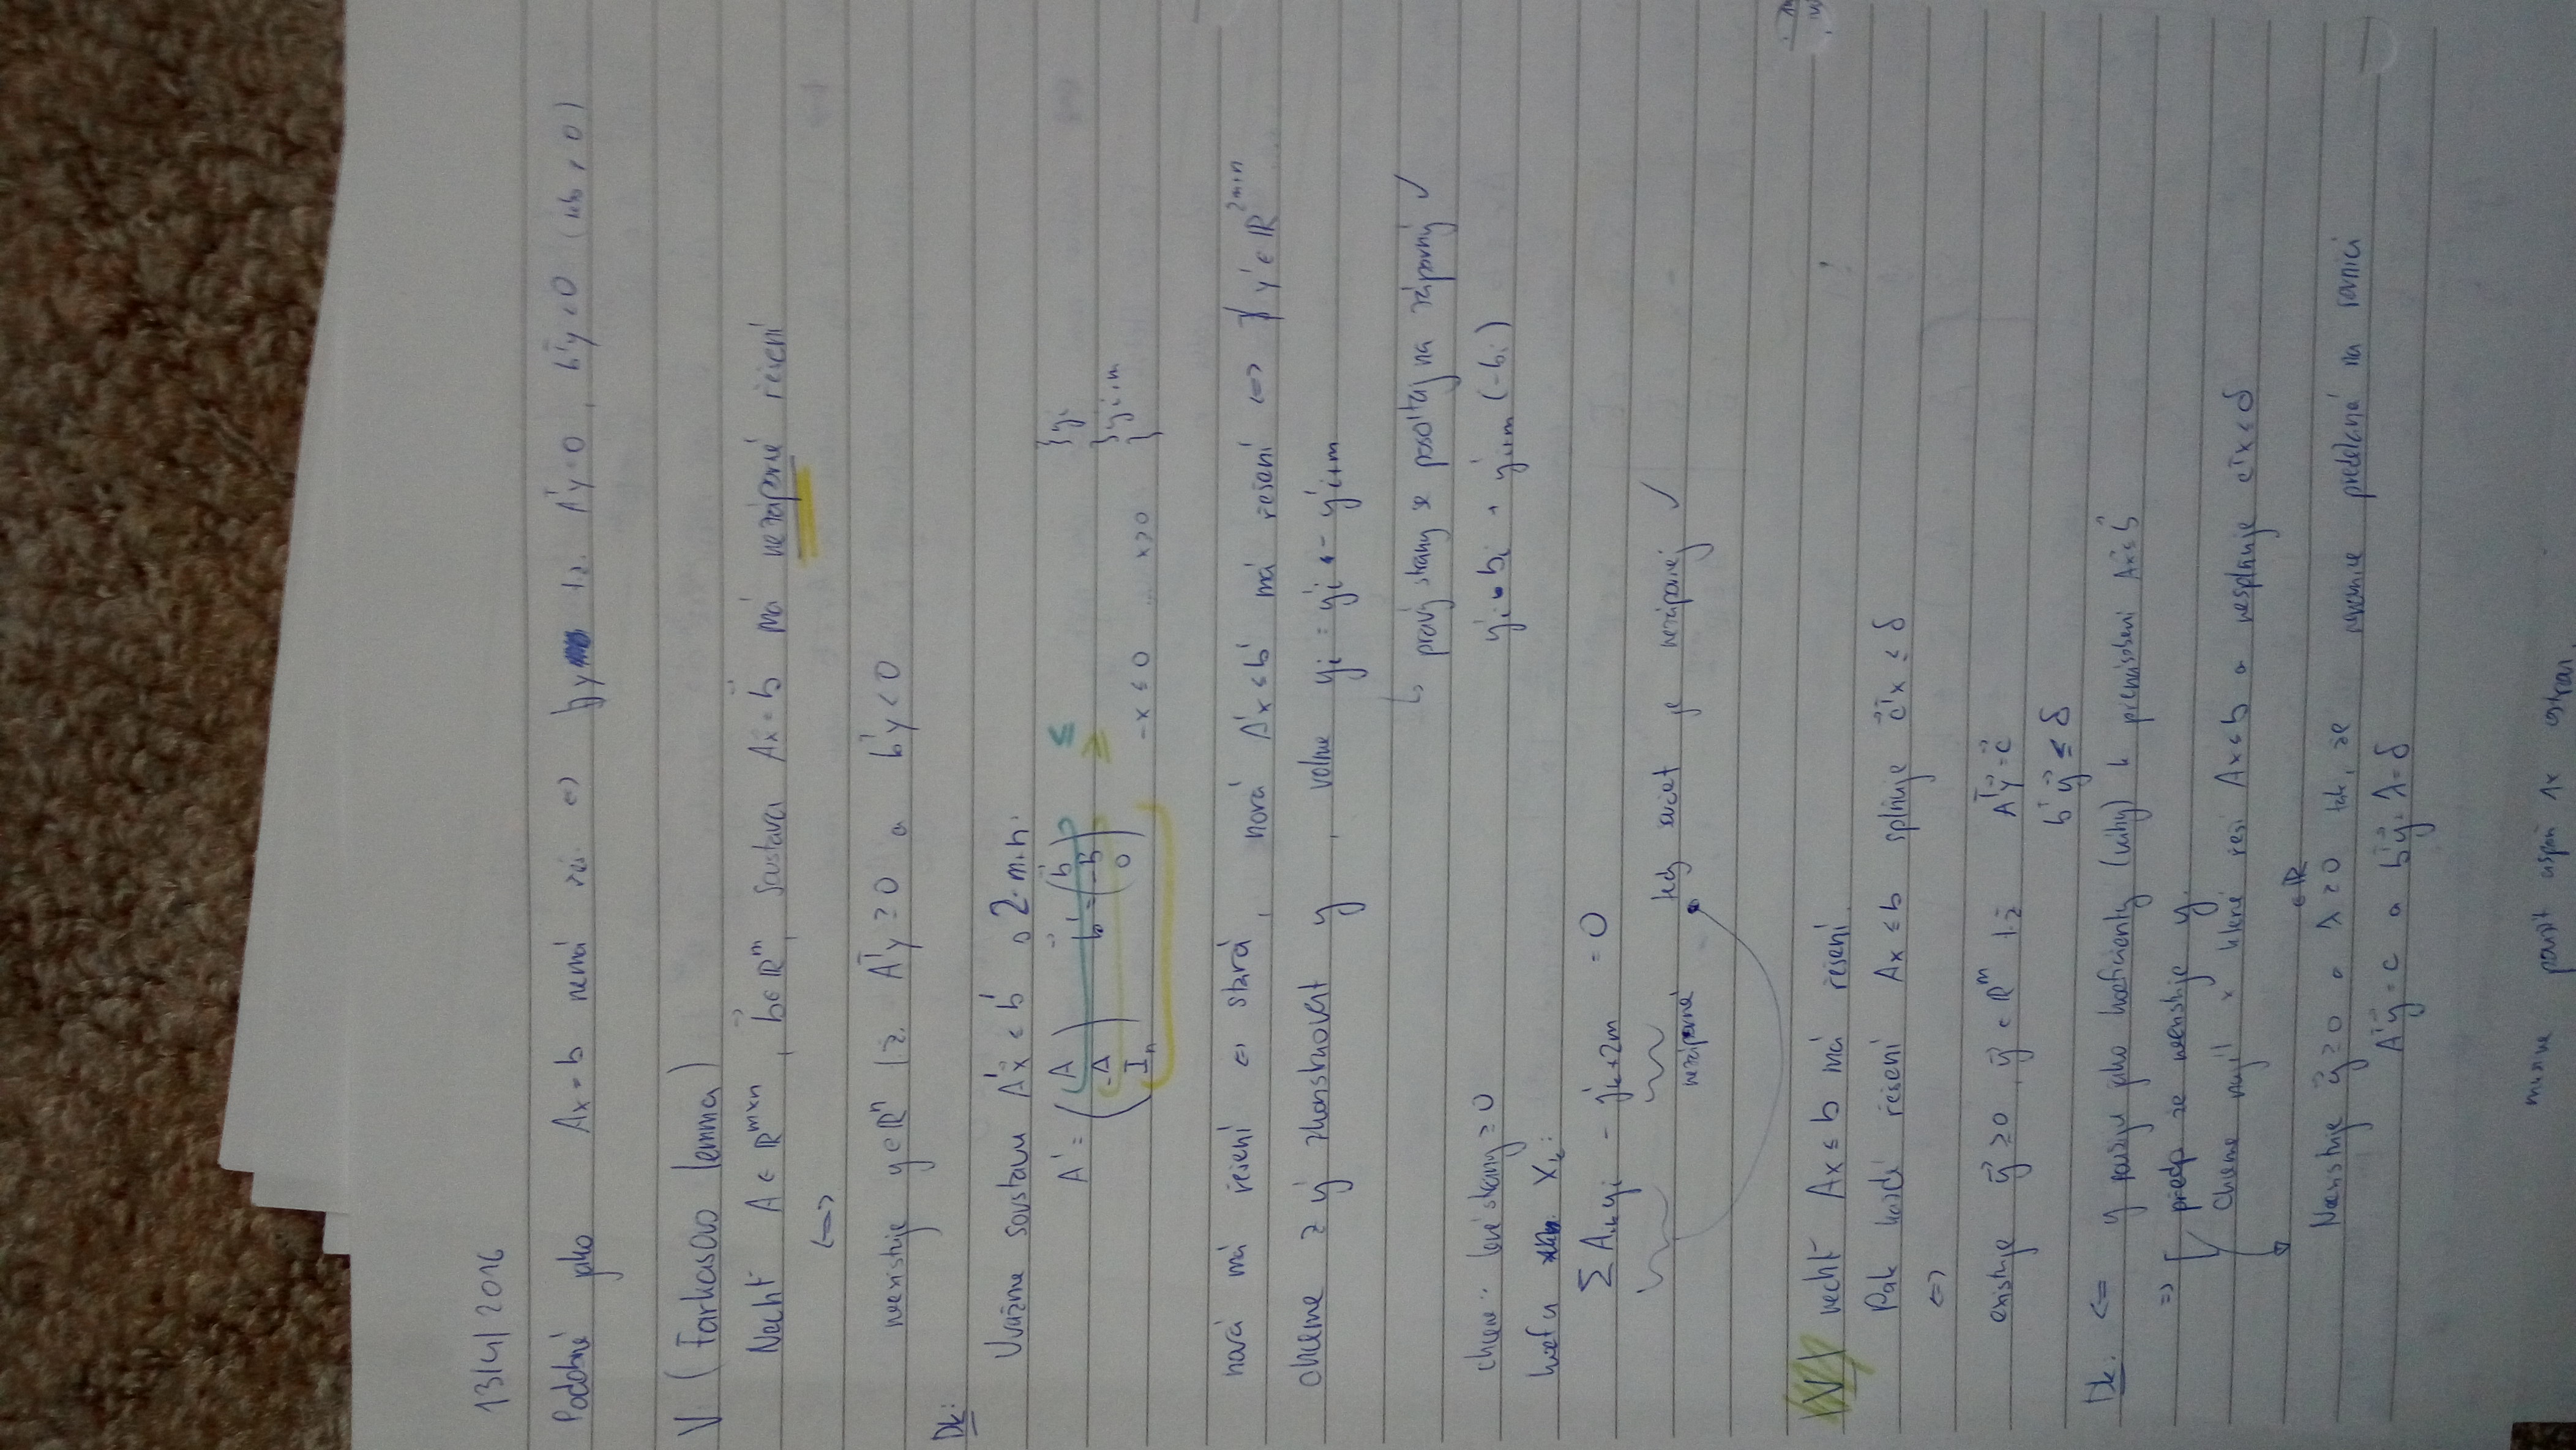 13/4/2016
Podobně jako Ax = b nemá řeš. <=> ∃y t.ž. Aᵀy = 0, bᵀy < 0
V (Farkasovo lemma)
Nechť A ∈ ℝ^{m×n}, b ∈ ℝ^m, soustava Ax = b má nezáporné řešení
<=>
neexistuje y ∈ ℝ^n t.ž. Aᵀy ≥ 0 a bᵀy < 0
Dk:
Uvažme soustavu A'x ≤ b' o 2·m+n
A' = (A b' = (b ≤ }y'i
-A -b ≥ }y'i+m
I_n) 0) -x ≤ 0 ... x ≥ 0 }
nová má řešení <=> stará, nová A'x ≤ b' má řešení <=> ∄ y' ∈ ℝ^{2m+n} ...
chceme z y' zkonstruovat y, volme yi = y'i - y'i+m
↳ pravý strany se posčítaj na záporný ✓
y'i · bi + y'i+m (-bi)
chceme: levé strany ≥ 0
koef u x_k:
∑ A_ik yi - y'_{k+2m} = 0
nezáporné tedy součet je nezáporný ✓
V nechť Ax ≤ b má řešení.
Pak každé řešení Ax ≤ b splňuje cᵀx ≤ δ
<=>
existuje y ≥ 0, y ∈ ℝ^m t.ž. Aᵀy = c
bᵀy ≤ δ
Dk: <= y použiju jako koeficienty (váhy) k přenásobení Ax ≤ b
=> předp že neexistuje y.
Chceme najít x které řeší Ax ≤ b a nesplňuje cᵀx ≤ δ
∈ ℝ
Neexistuje y ≥ 0 a λ ≥ 0 tak, že
Aᵀy = c a bᵀy + λ = δ